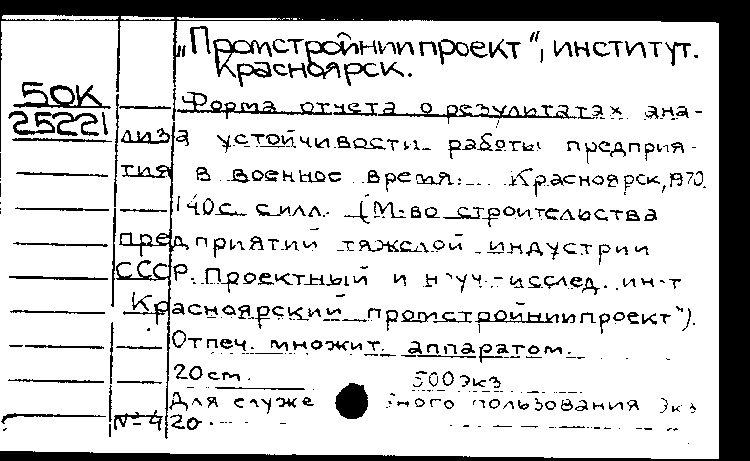 „Промстройниипроект“, институт.
Красноярск.
50К
25221
Форма отчета о результатах ана-
лиза устойчивости работы предприя-
тия в военное время. Красноярск, 1970.
140 с. с илл. (М-во строительства
предприятий тяжелой индустрии
СССР. Проектный и науч.-исслед. ин-т
Красноярский промстройниипроект").
Отпеч. множит. аппаратом.
20 см. 500 экз
Для служебного пользования Экз
№ 420.